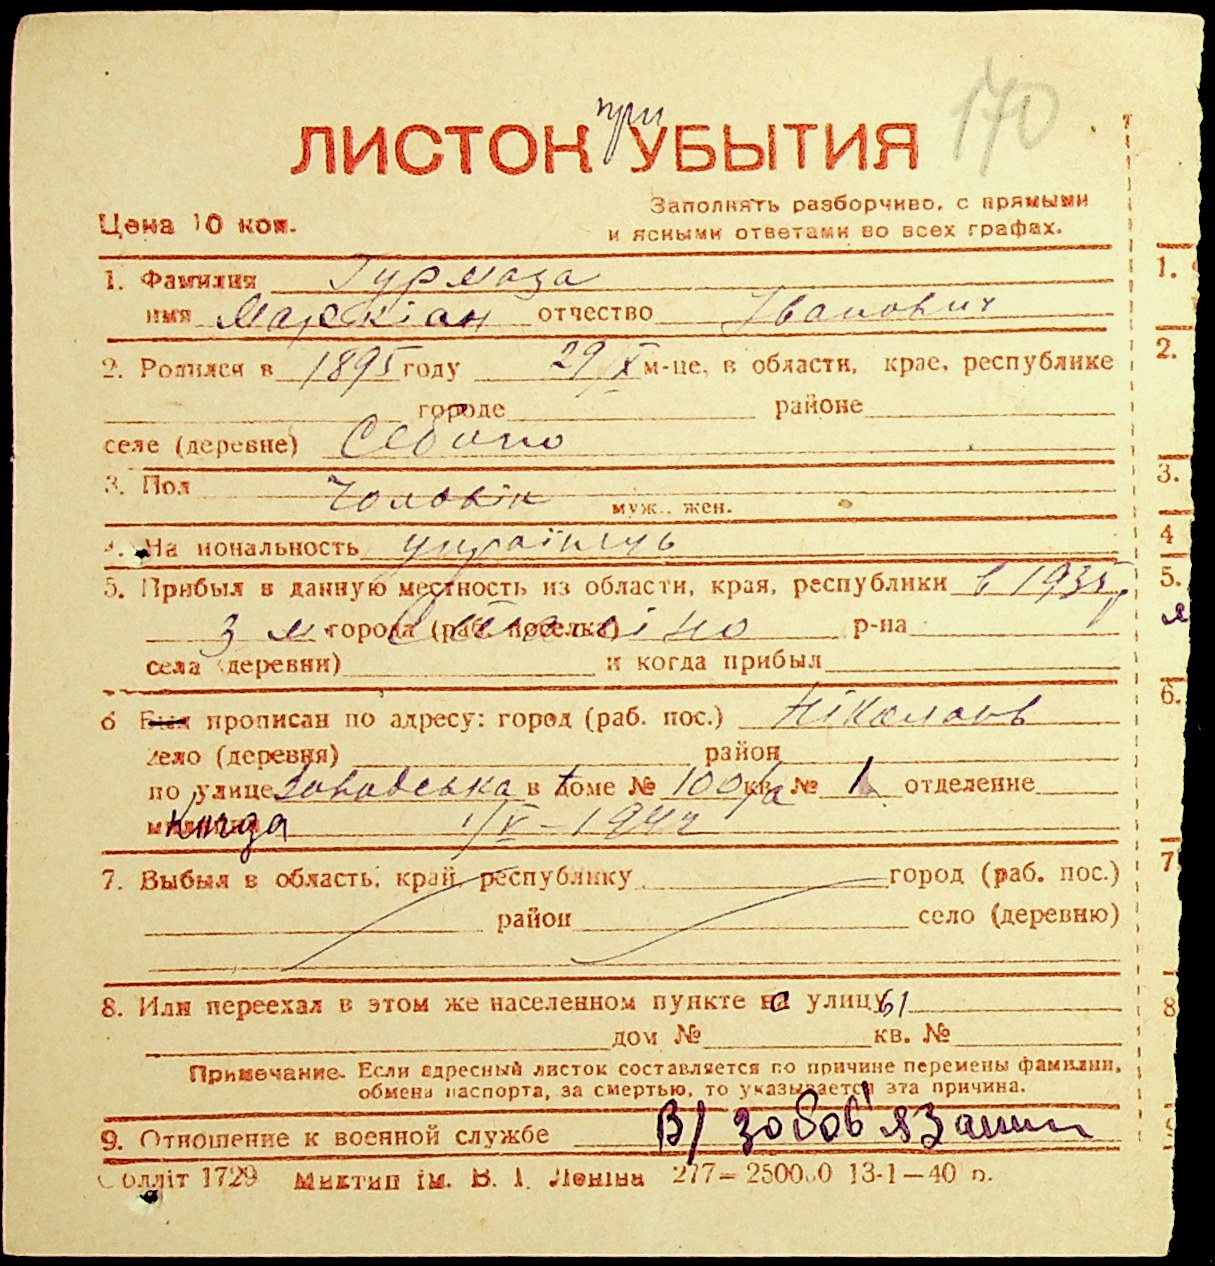 170
при
ЛИСТОК УБЫТИЯ
Цена 10 коп.
Заполнять разборчиво, с прямыми
и ясными ответами во всех графах.
1. Фамилия Гурмаза
имя Маркіан отчество Іванович
2. Родился в 1895 году 29/X м-це, в области, крае, республике
городе районе
селе (деревне) Себино
3. Пол Чоловік муж., жен.
4. На иональность українець
5. Прибыл в данную местность из области, края, республики в 1935 р
з м. города (раб. поселка) Сталіно р-на
села (деревни) и когда прибыл
6 Был прописан по адресу: город (раб. пос.) Ніколаєв
село (деревня) район
по улице Заводська в доме № 100/а кв. № 1 отделение
1/V-1944
7. Выбыл в область, край, республику город (раб. пос.)
район село (деревню)
8. Или переехал в этом же населенном пункте на улицу 61
дом № кв. №
Примечание. Если адресный листок составляется по причине перемены фамилии,
обмена паспорта, за смертью, то указывается эта причина.
9. Отношение к военной службе В/зобов'язаний
Облліт 1729 Миктип ім. В. І. Леніна 277—250000 13-1—40 р.
1.
2.
3.
4
5.
я
6.
7
8